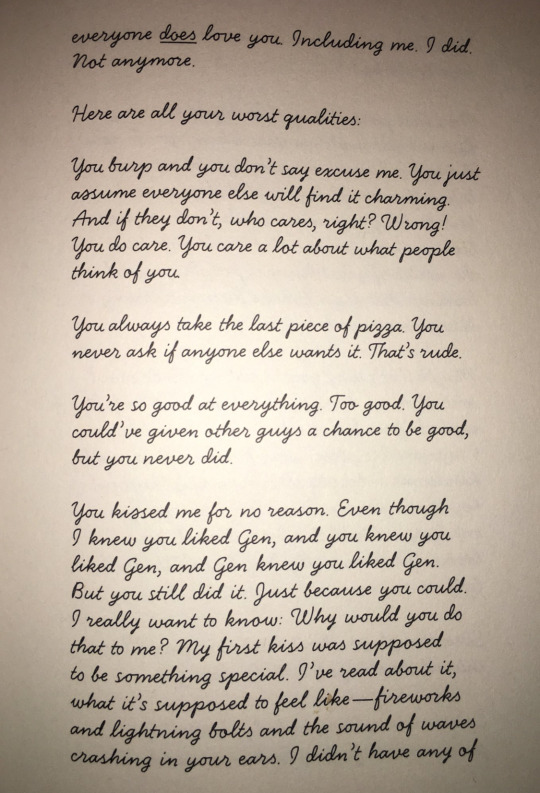 everyone does love you. Including me. I did.
Not anymore.
Here are all your worst qualities:
You burp and you don't say excuse me. You just
assume everyone else will find it charming.
And if they don't, who cares, right? Wrong!
You do care. You care a lot about what people
think of you.
You always take the last piece of pizza. You
never ask if anyone else wants it. That's rude.
You're so good at everything. Too good. You
could've given other guys a chance to be good,
but you never did.
You kissed me for no reason. Even though
I knew you liked Gen, and you knew you
liked Gen, and Gen knew you liked Gen.
But you still did it. Just because you could.
I really want to know: Why would you do
that to me? My first kiss was supposed
to be something special. I've read about it,
what it's supposed to feel like—fireworks
and lightning bolts and the sound of waves
crashing in your ears. I didn't have any of